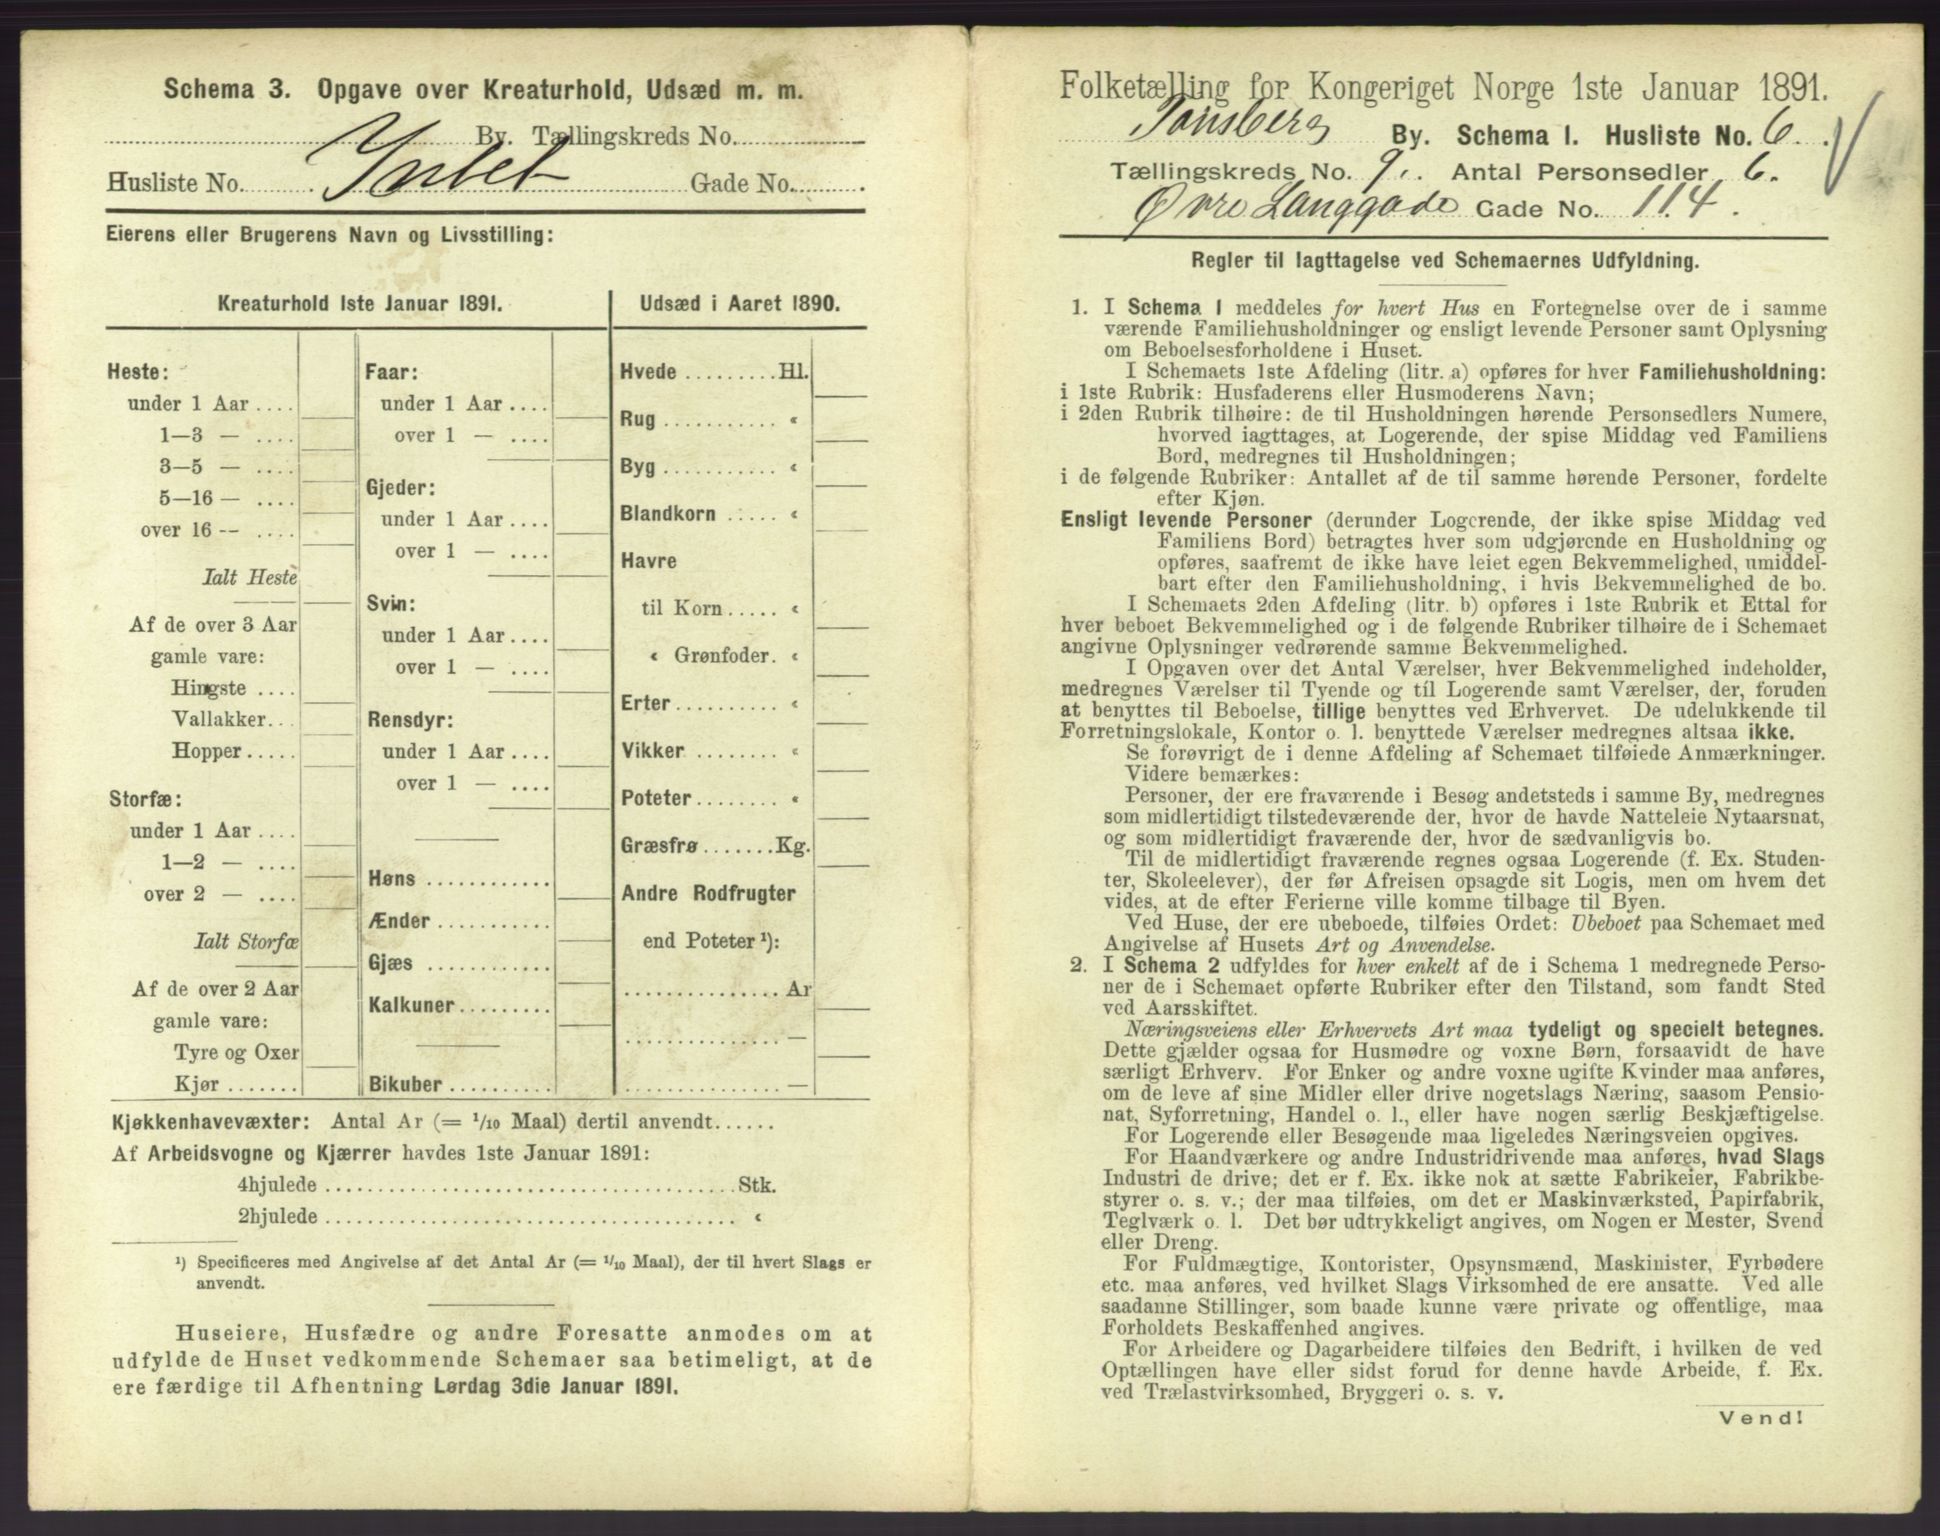 Schema 3. Opgave over Kreaturhold, Udsæd m. m.
By. Tællingskreds No.
Husliste No. Intet Gade No.
Eierens eller Brugerens Navn og Livsstilling:
Kreaturhold 1ste Januar 1891.
Heste:
under 1 Aar
1—3 —
3—5 —
5—16 —
over 16 —
Ialt Heste
Af de over 3 Aar
gamle vare:
Hingste
Vallakker
Hopper
Storfæ:
under 1 Aar
1—2 —
over 2 —
Ialt Storfæ
Af de over 2 Aar
gamle vare:
Tyre og Oxer
Kjør
Faar:
under 1 Aar
over 1 —
Gjeder:
under 1 Aar
over 1 —
Svin:
under 1 Aar
over 1 —
Rensdyr:
under 1 Aar
over 1 —
Høns
Ænder
Gjæs
Kalkuner
Bikuber
Udsæd i Aaret 1890.
Hvede Hl.
Rug «
Byg «
Blandkorn «
Havre
til Korn «
« Grønfoder. «
Erter «
Vikker «
Poteter «
Græsfrø Kg.
Andre Rodfrugter
end Poteter ¹):
Ar
—
—
Kjøkkenhavevæxter: Antal Ar (= 1/10 Maal) dertil anvendt
Af Arbeidsvogne og Kjærrer havdes 1ste Januar 1891:
4hjulede Stk.
2hjulede «
¹) Specificeres med Angivelse af det Antal Ar (= 1/10 Maal), der til hvert Slags er
anvendt.
Huseiere, Husfædre og andre Foresatte anmodes om at
udfylde de Huset vedkommende Schemaer saa betimeligt, at de
ere færdige til Afhentning Lørdag 3die Januar 1891.
Folketælling for Kongeriget Norge 1ste Januar 1891.
Tønsberg By. Schema I. Husliste No. 6.
Tællingskreds No. 9. Antal Personsedler 6.
Øvre Langgade Gade No. 114.
Regler til Iagttagelse ved Schemaernes Udfyldning.
1. I Schema I meddeles for hvert Hus en Fortegnelse over de i samme
værende Familiehusholdninger og ensligt levende Personer samt Oplysning
om Beboelsesforholdene i Huset.
I Schemaets 1ste Afdeling (litr. a) opføres for hver Familiehusholdning:
i 1ste Rubrik: Husfaderens eller Husmoderens Navn;
i 2den Rubrik tilhøire: de til Husholdningen hørende Personsedlers Numere,
hvorved iagttages, at Logerende, der spise Middag ved Familiens
Bord, medregnes til Husholdningen;
i de følgende Rubriker: Antallet af de til samme hørende Personer, fordelte
efter Kjøn.
Ensligt levende Personer (derunder Logerende, der ikke spise Middag ved
Familiens Bord) betragtes hver som udgjørende en Husholdning og
opføres, saafremt de ikke have leiet egen Bekvemmelighed, umiddel-
bart efter den Familiehusholdning, i hvis Bekvemmelighed de bo.
I Schemaets 2den Afdeling (litr. b) opføres i 1ste Rubrik et Ettal for
hver beboet Bekvemmelighed og i de følgende Rubriker tilhøire de i Schemaet
angivne Oplysninger vedrørende samme Bekvemmelighed.
I Opgaven over det Antal Værelser, hver Bekvemmelighed indeholder,
medregnes Værelser til Tyende og til Logerende samt Værelser, der, foruden
at benyttes til Beboelse, tillige benyttes ved Erhvervet. De udelukkende til
Forretningslokale, Kontor o. l. benyttede Værelser medregnes altsaa ikke.
Se forøvrigt de i denne Afdeling af Schemaet tilføiede Anmærkninger.
Videre bemærkes:
Personer, der ere fraværende i Besøg andetsteds i samme By, medregnes
som midlertidigt tilstedeværende der, hvor de havde Natteleie Nytaarsnat,
og som midlertidigt fraværende der, hvor de sædvanligvis bo.
Til de midlertidigt fraværende regnes ogsaa Logerende (f. Ex. Studen-
ter, Skoleelever), der før Afreisen opsagde sit Logis, men om hvem det
vides, at de efter Ferierne ville komme tilbage til Byen.
Ved Huse, der ere ubeboede, tilføies Ordet: Ubeboet paa Schemaet med
Angivelse af Husets Art og Anvendelse.
2. I Schema 2 udfyldes for hver enkelt af de i Schema 1 medregnede Perso-
ner de i Schemaet opførte Rubriker efter den Tilstand, som fandt Sted
ved Aarsskiftet.
Næringsveiens eller Erhvervets Art maa tydeligt og specielt betegnes.
Dette gjælder ogsaa for Husmødre og voxne Børn, forsaavidt de have
særligt Erhverv. For Enker og andre voxne ugifte Kvinder maa anføres,
om de leve af sine Midler eller drive nogetslags Næring, saasom Pensio-
nat, Syforretning, Handel o. l., eller have nogen særlig Beskjæftigelse.
For Logerende eller Besøgende maa ligeledes Næringsveien opgives.
For Haandværkere og andre Industridrivende maa anføres, hvad Slags
Industri de drive; det er f. Ex. ikke nok at sætte Fabrikeier, Fabrikbe-
styrer o. s. v.; der maa tilføies, om det er Maskinværksted, Papirfabrik,
Teglværk o. l. Det bør udtrykkeligt angives, om Nogen er Mester, Svend
eller Dreng.
For Fuldmægtige, Kontorister, Opsynsmænd, Maskinister, Fyrbødere
etc. maa anføres, ved hvilket Slags Virksomhed de ere ansatte. Ved alle
saadanne Stillinger, som baade kunne være private og offentlige, maa
Forholdets Beskaffenhed angives.
For Arbeidere og Dagarbeidere tilføies den Bedrift, i hvilken de ved
Optællingen have eller sidst forud for denne havde Arbeide, f. Ex.
ved Trælastvirksomhed, Bryggeri o. s. v.
Vend!